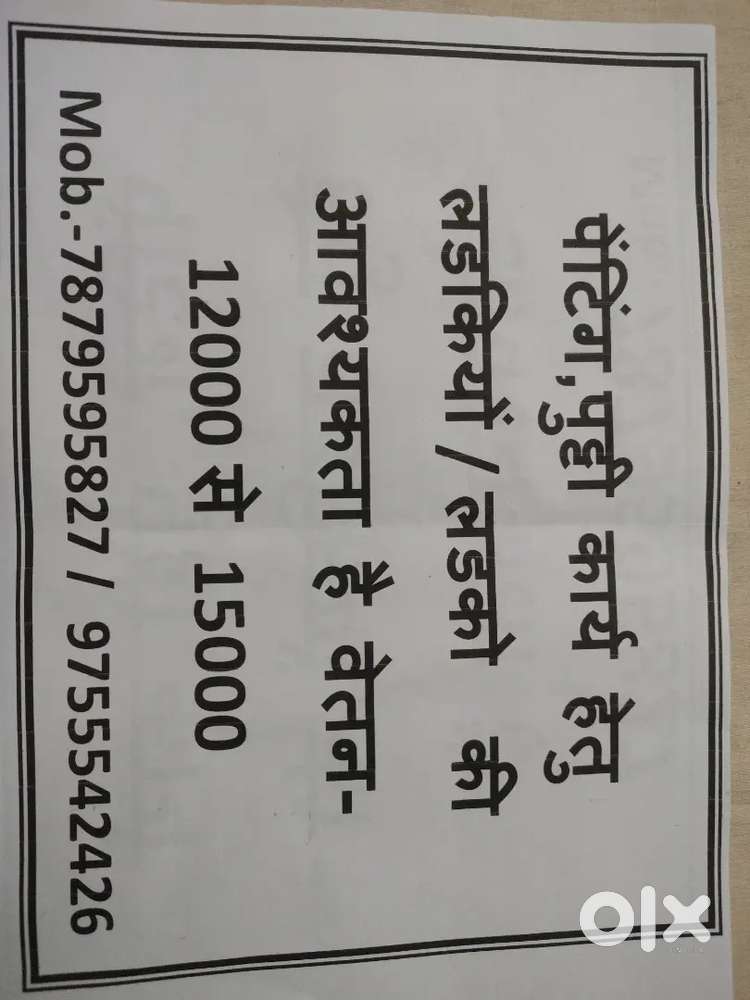 पेंटिंग,पुट्टी कार्य हेतु
लडकियों / लडको की
आवश्यकता है वेतन-
12000 से 15000
Mob.-7879595827 / 9755542426
olx